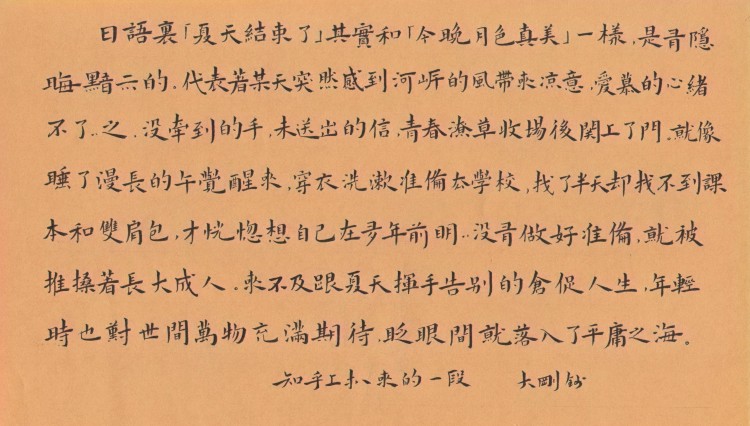 日語裏「夏天結束了」其實和「今晚月色真美」一樣,是有隱
晦暗示的.代表著某天突然感到河岸的風帶來涼意,愛慕的心緒
不了..之.没牽到的手,未送出的信,青春潦草收場後関上了門.就像
睡了漫長的午覺醒來,穿衣洗漱准備去學校,找了半天却找不到課
本和雙肩包,才恍惚想自己在多年前明..没有做好准備,就被
推搡著長大成人.來不及跟夏天揮手告别的倉促人生,年輕
時也對世間萬物充滿期待,眨眼間就落入了平庸之海。
知乎上未來的一段 大剛鈔